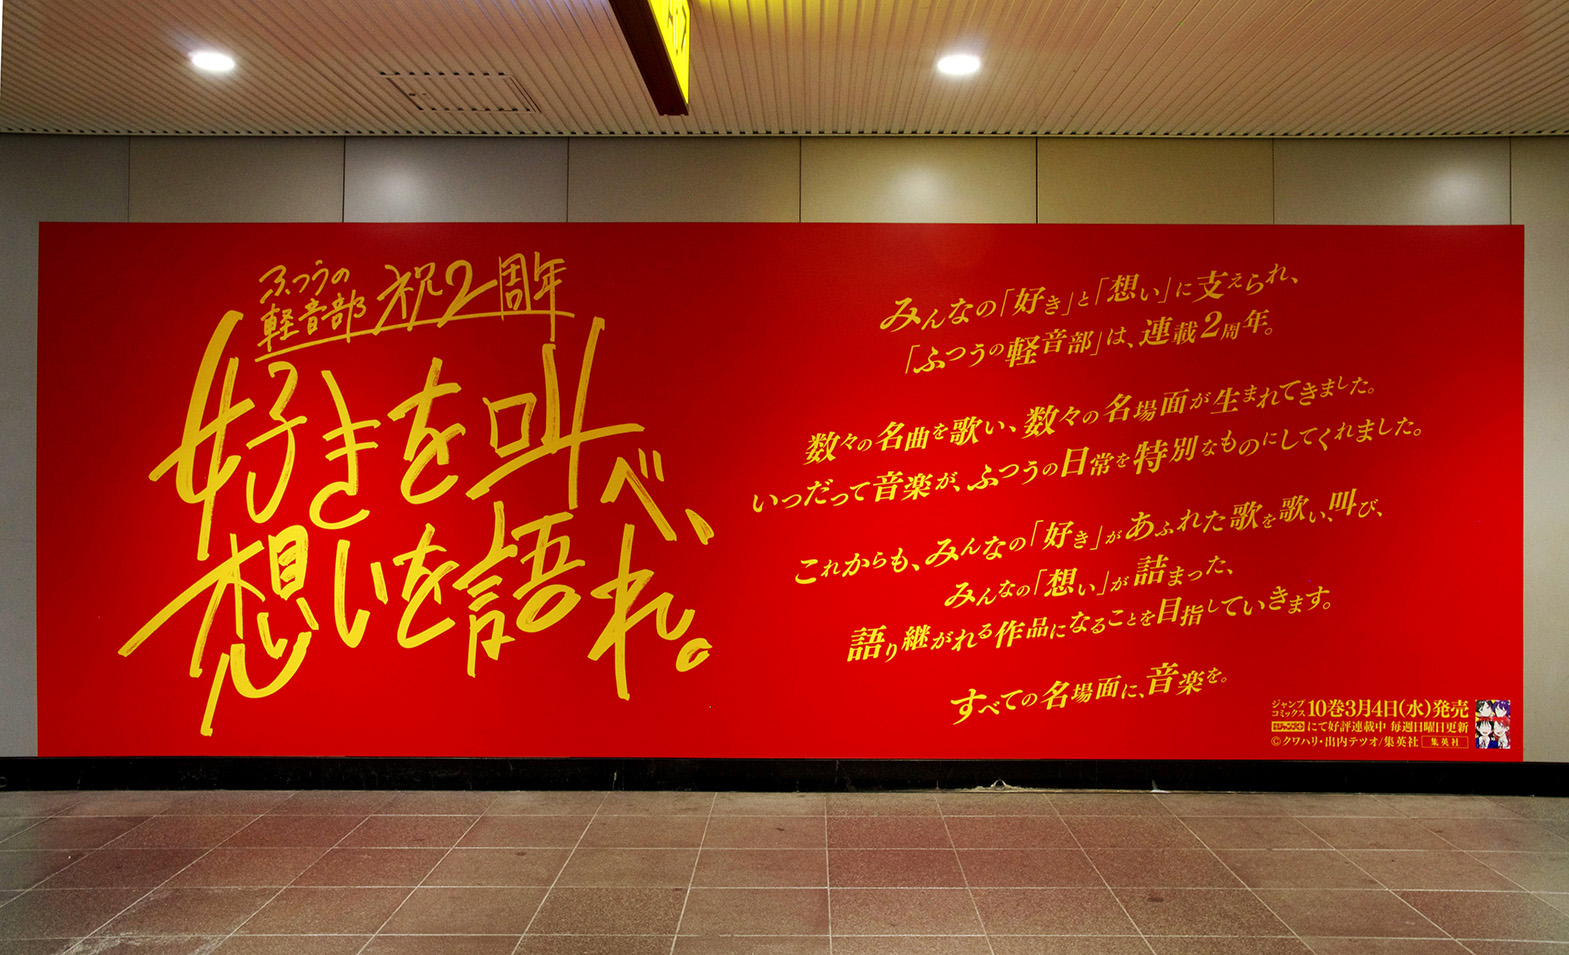 ふつうの
軽音部
祝2周年
好きを叫べ、
想いを語れ。
みんなの「好き」と「想い」に支えられ、
「ふつうの軽音部」は、連載2周年。
数々の名曲を歌い、数々の名場面が生まれてきました。
いつだって音楽が、ふつうの日常を特別なものにしてくれました。
これからも、みんなの「好き」があふれた歌を歌い、叫び、
みんなの「想い」が詰まった、
語り継がれる作品になることを目指していきます。
すべての名場面に、音楽を。
ジャンプ
コミックス
10巻3月4日(水)発売
にて好評連載中 毎週日曜日更新
©クワハリ・出内テツオ/集英社
集英社